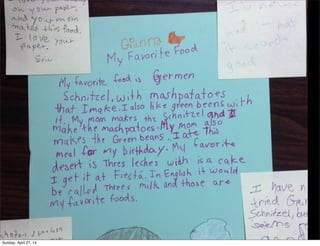 I love your
on your paper.
and your mom
makes this food.
I love your
paper.
Eric
Gianna
My Favorite Food
My favorite food is Germen
Schnitzel, with mashpatatoes
that I make. I also like green beens with
it. My mom makes the Schnitzel and I
make the mashpotoes. My mom also
makes the Green beans. I ate this
meal for my birthday. My favorite
desert is Thres leches with is a cake
I get it at Fiesta. In English it would
be called Threes milk and those are
my favorite foods.
good
I have n
tried Ger
Schnitzel, but
Sunday, April 27, 14